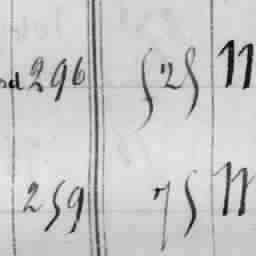 nd 296 525 11
259 75 11